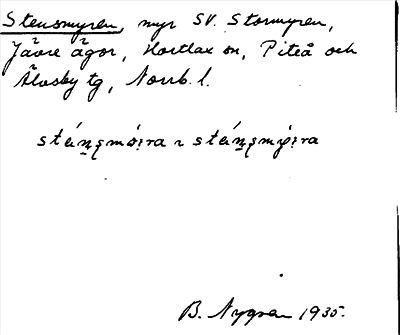 Stensmyren, myr SV. Stormyren,
Jävre ägor, Hortlax sn, Piteå och
Älvsby tg, Norrb. l.
B. Nygren 1935.